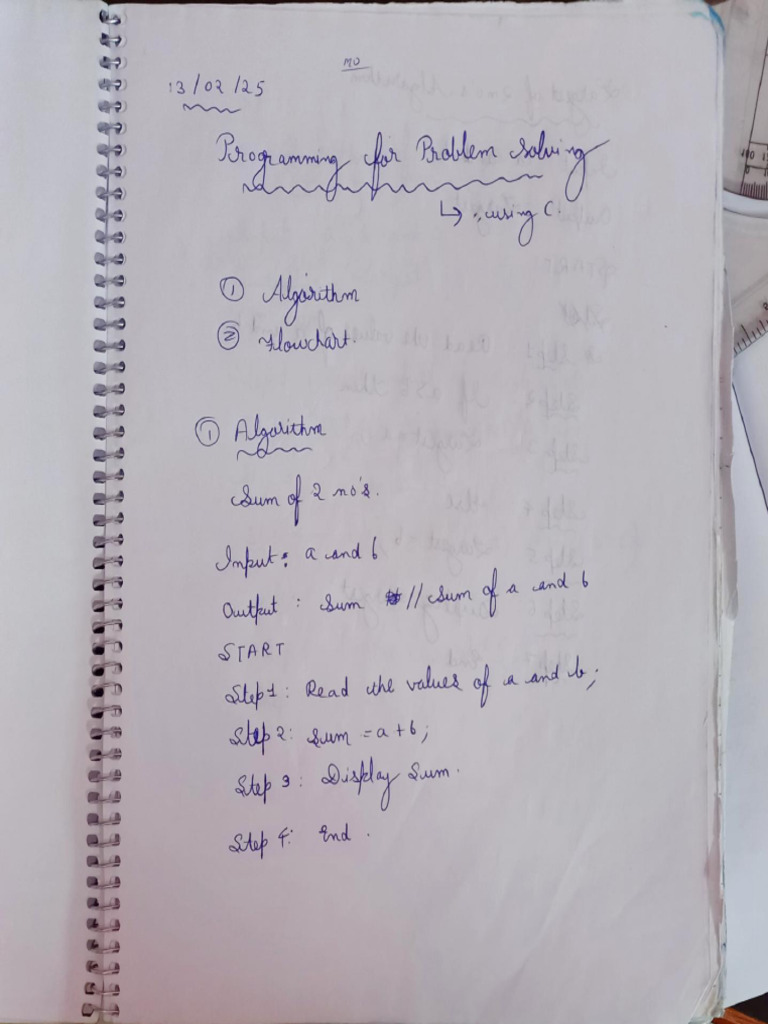 MO
13/02/25
Programming for Problem Solving
↳ using C.
① Algorithm
② Flowchart.
① Algorithm
Sum of 2 no's.
Input : a and b
Output : Sum // Sum of a and b
START
Step 1 : Read the values of a and b;
Step 2 : Sum = a + b;
Step 3 : Display Sum.
Step 4 : End.